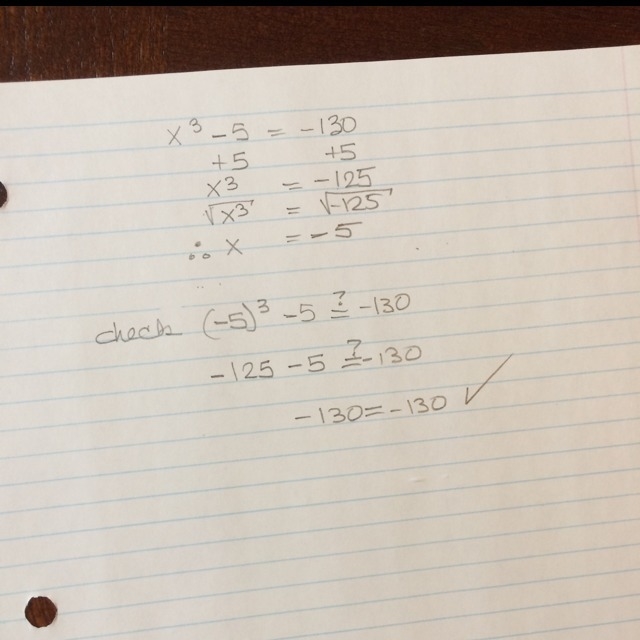 x³ - 5 = -130
+5 +5
x³ = -125
√x³ = √-125
∴ x = -5
check (-5)³ - 5 ≟ -130
-125 - 5 ≟ -130
-130 = -130 ✓